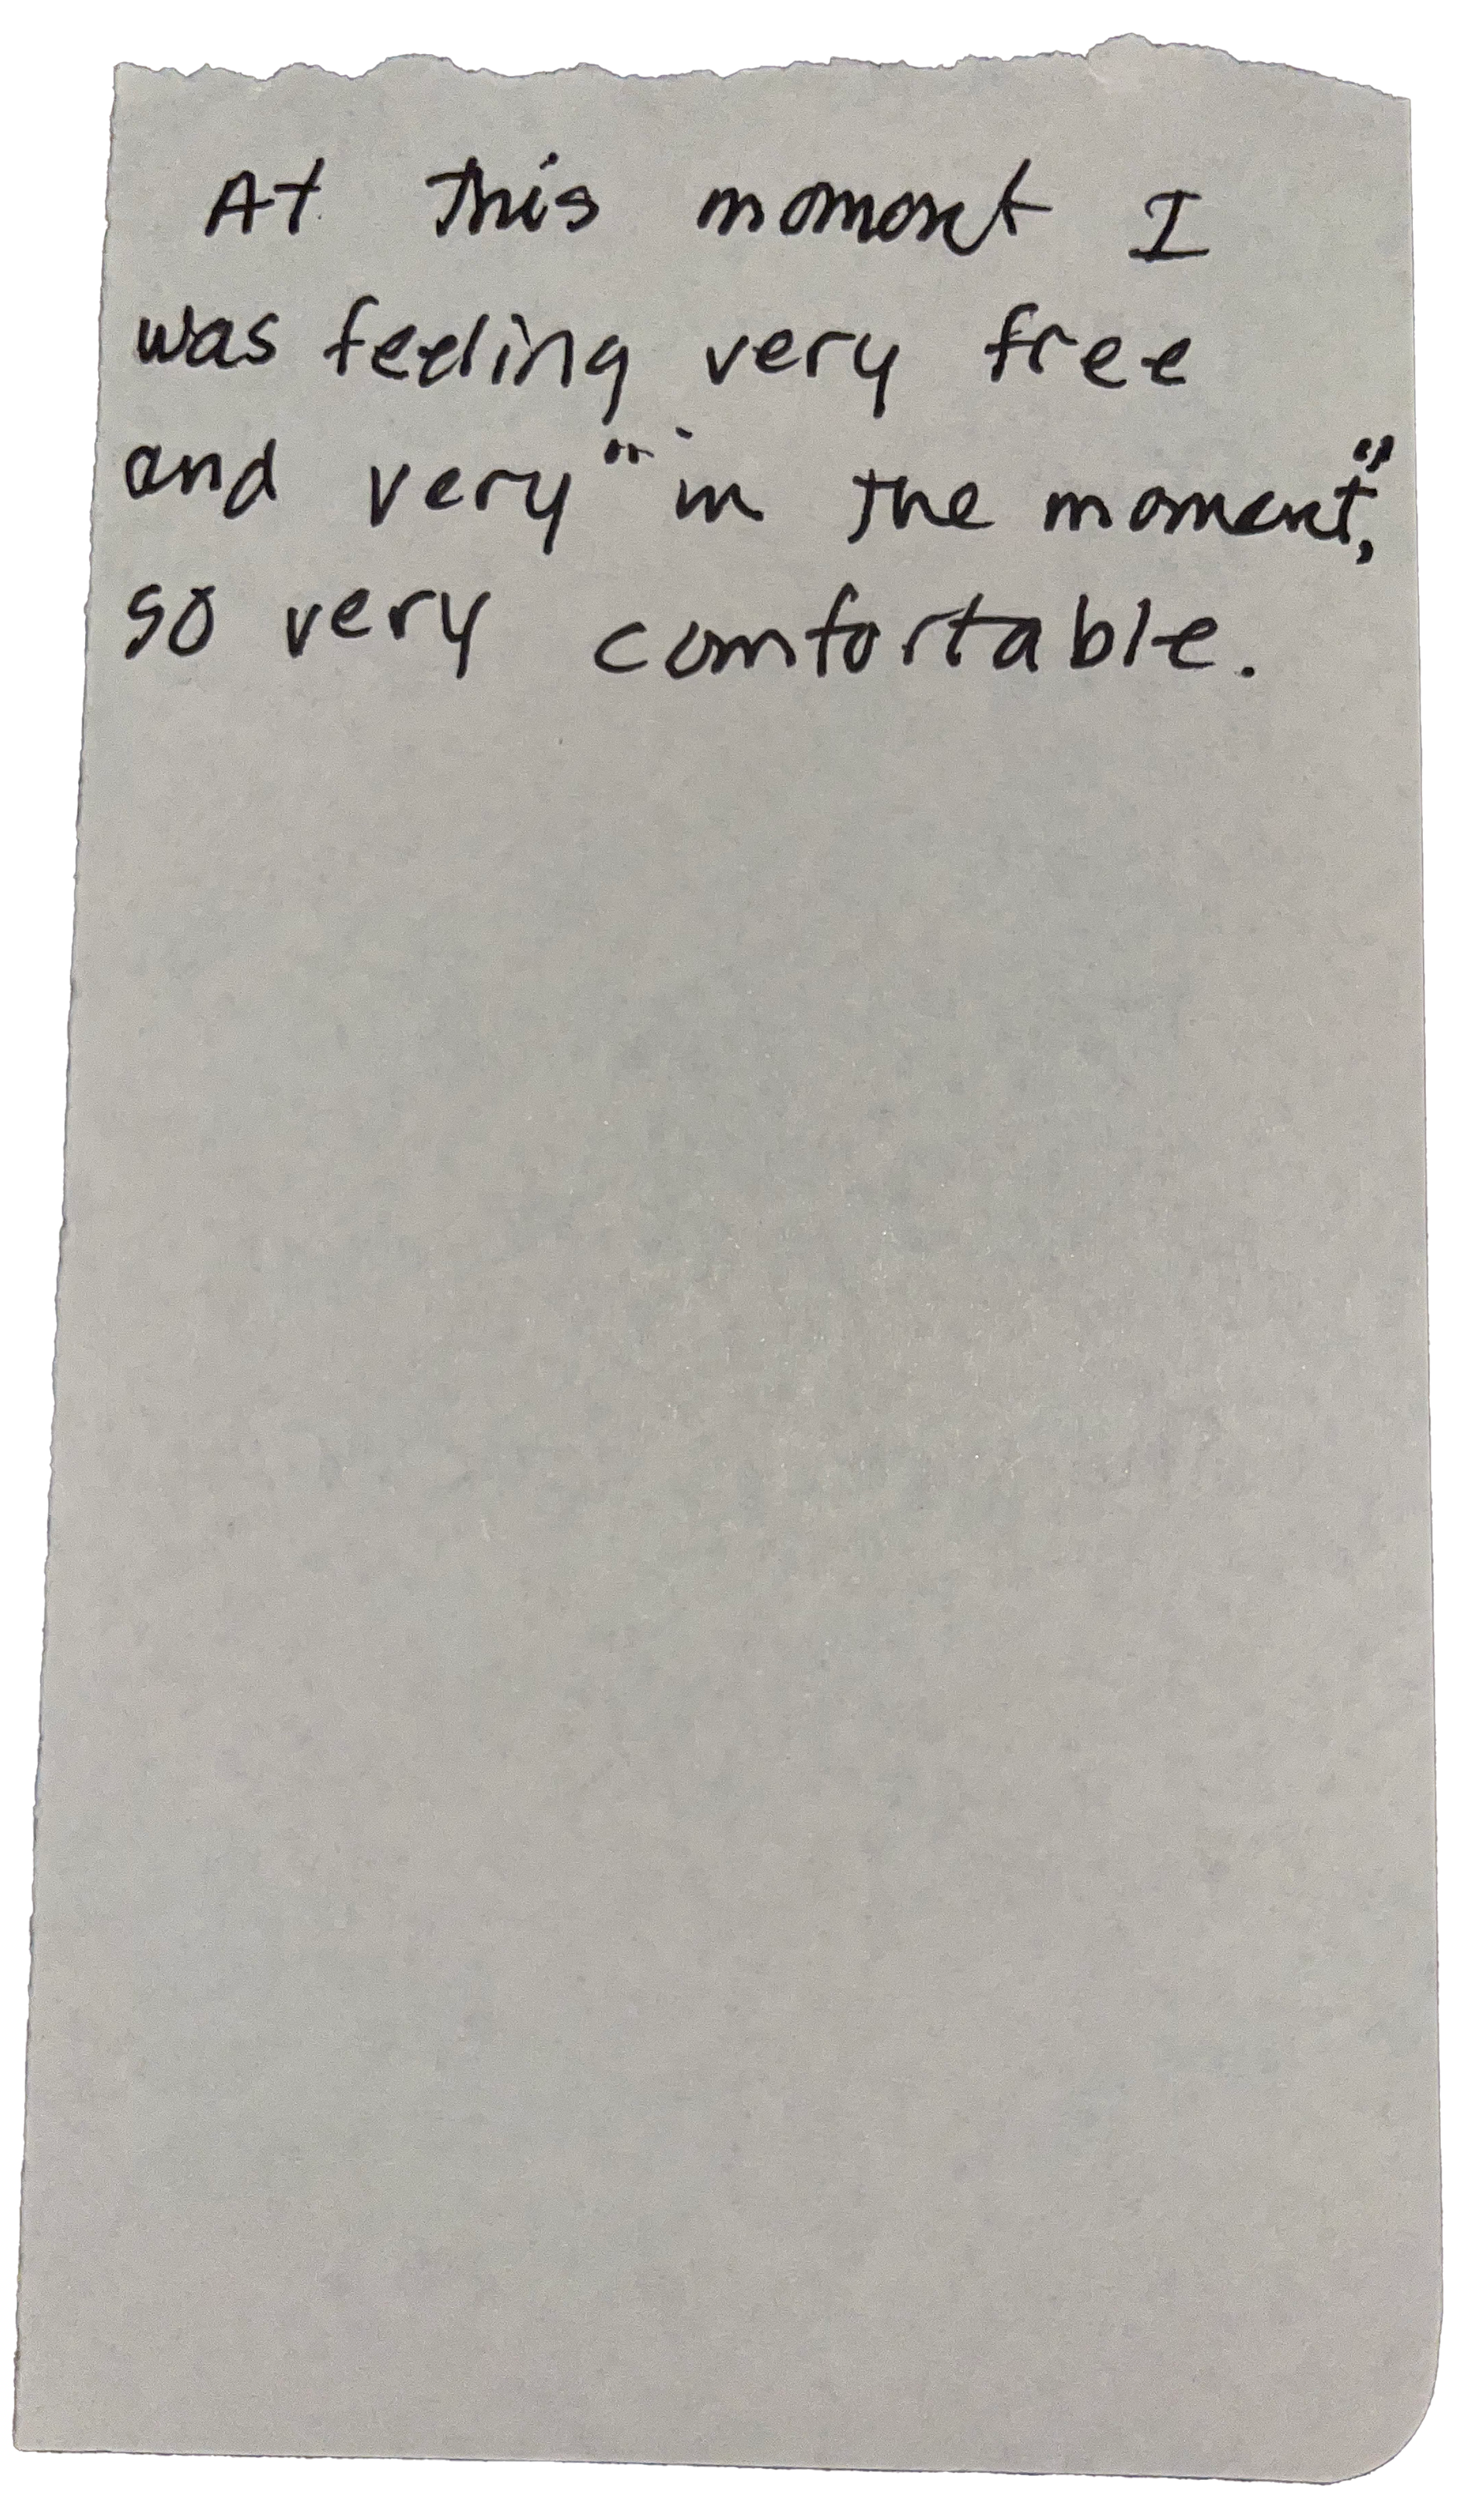 At this moment I
was feeling very free
and very "in the moment",
so very comfortable.